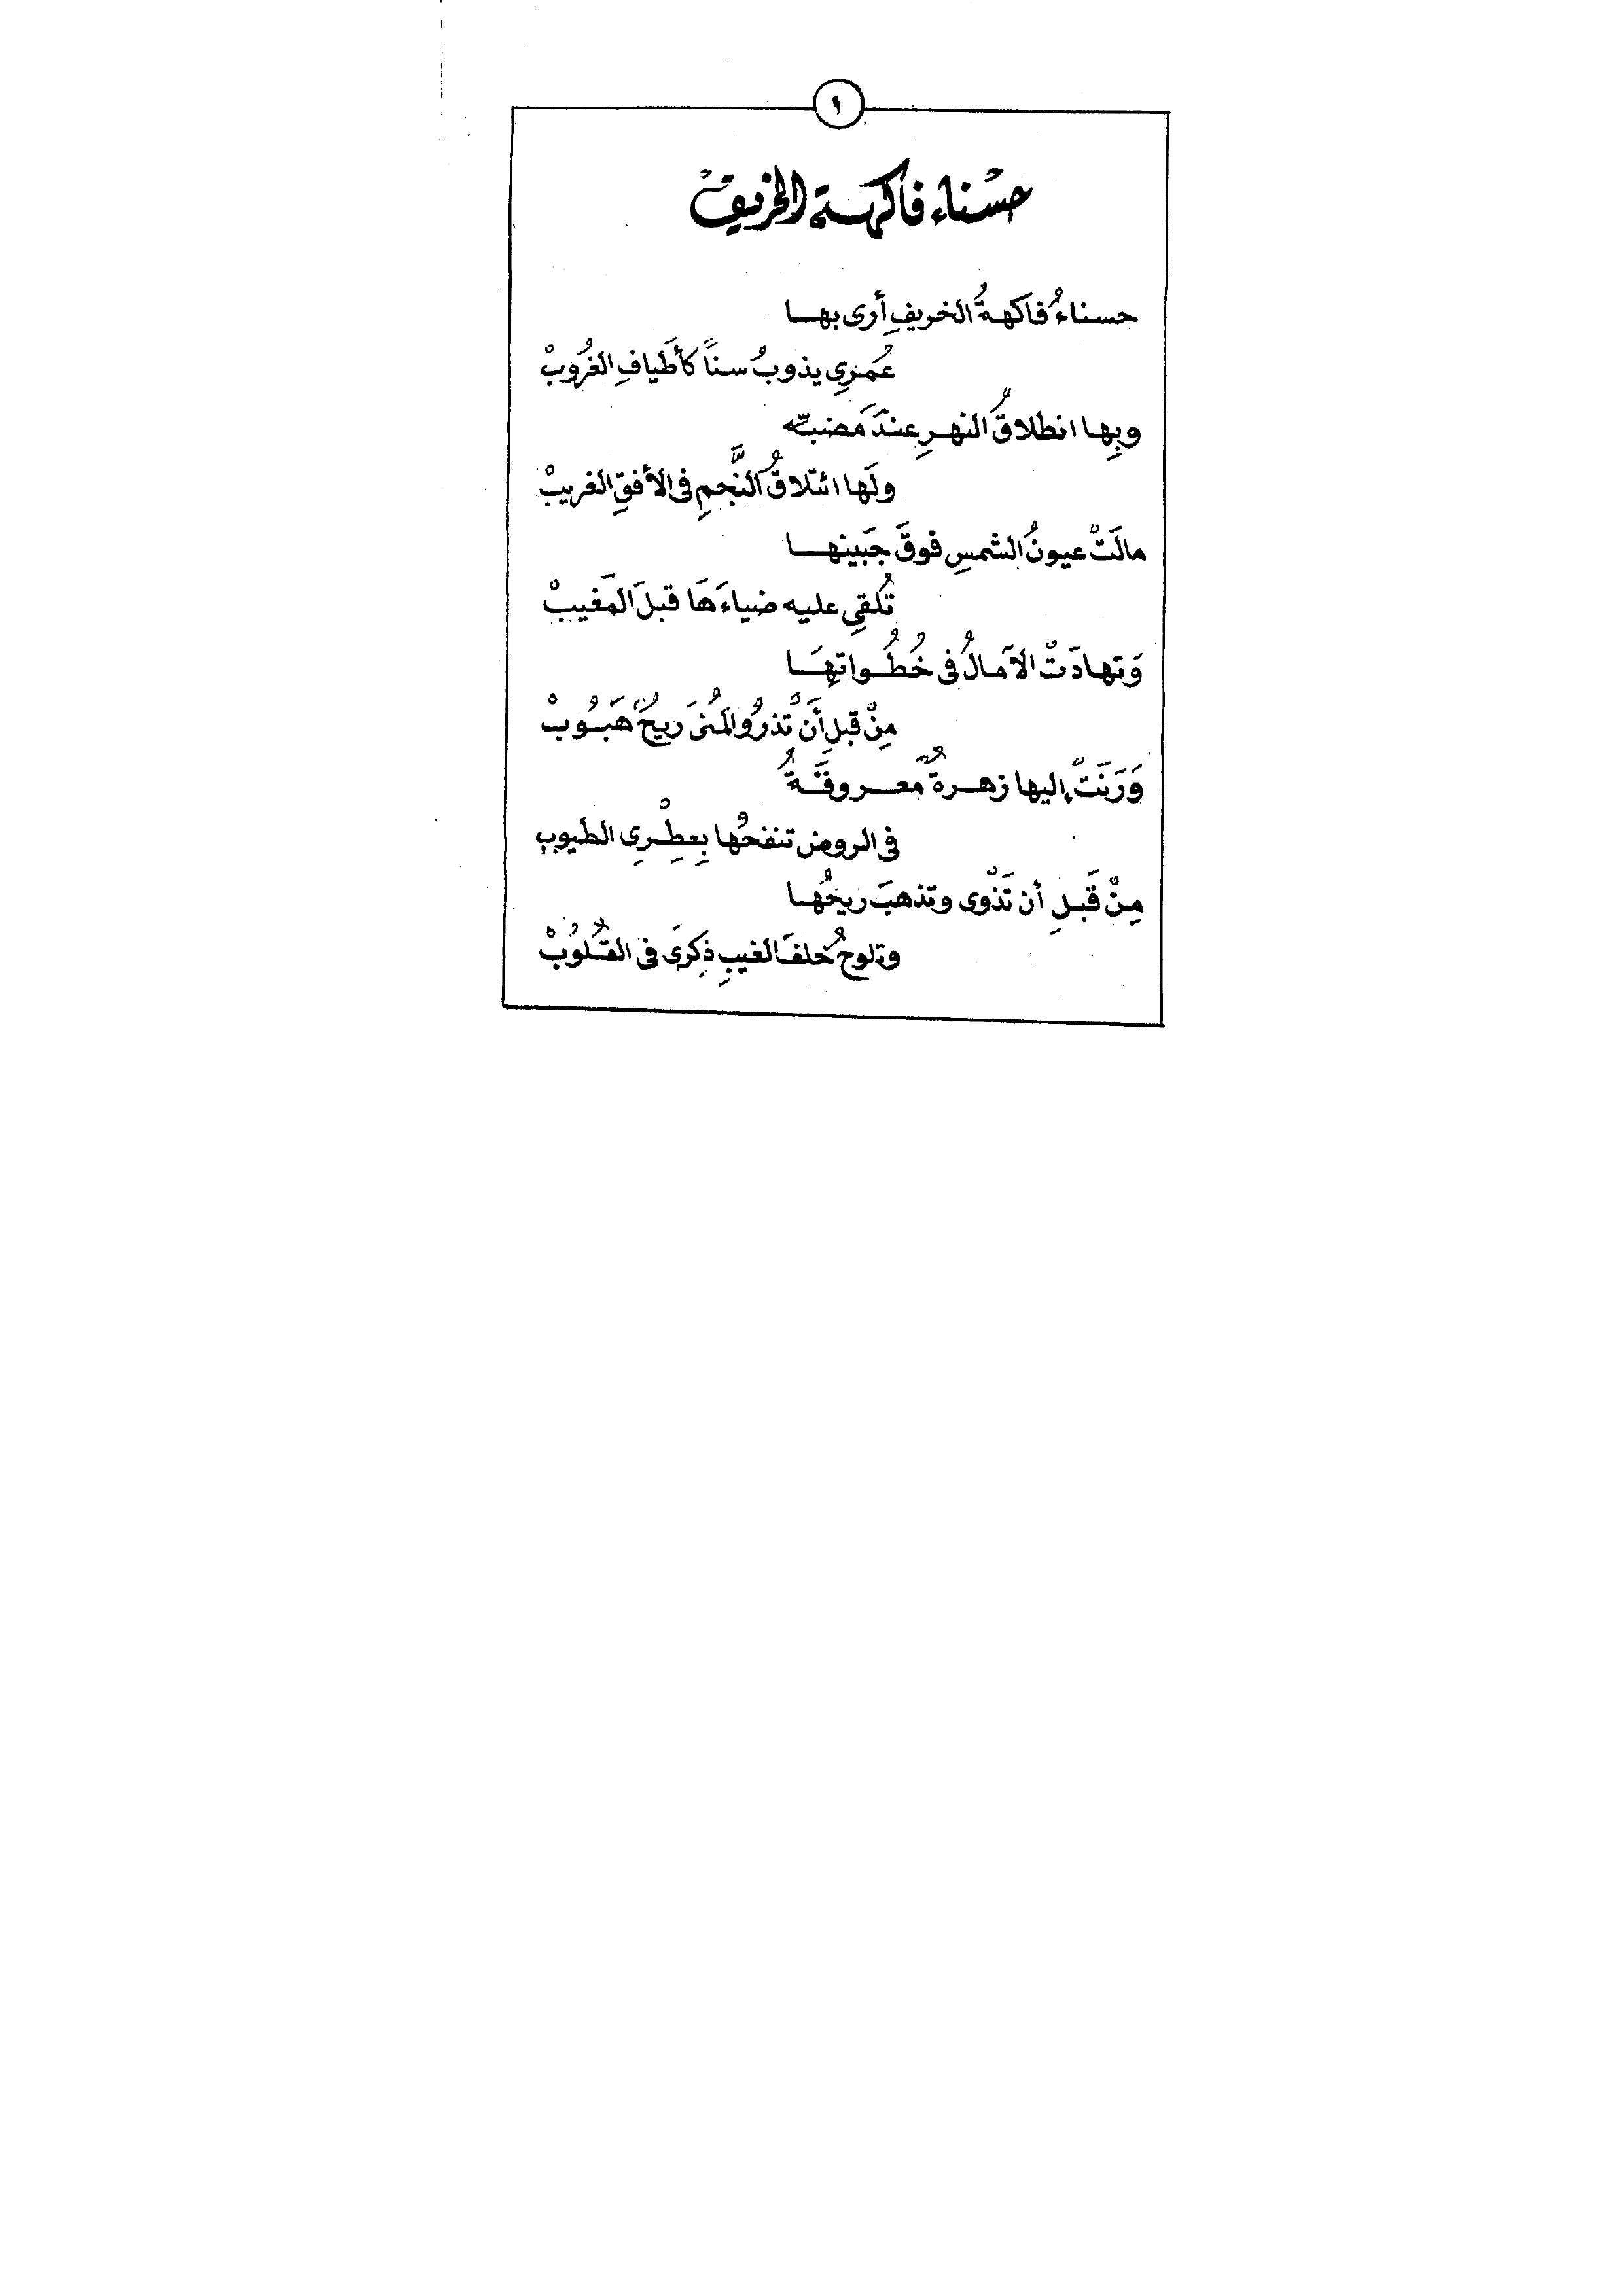 ١
حسناء فاكهة الخريف
حسناءُ فاكهةُ الخريفِ أرى بهــا
عُمَرِي يذوبُ سناً كأطيافِ الغُرُوبْ
وبِها انطلاقُ النهرِ عندَ مَضبّه
ولَها ائتلاقُ النَّجمِ فى الأفقِ الغريبْ
مالَتْ عيونُ الشمسِ فوقَ جَبينهــا
تُلقِي عليه ضياءَهَا قبلَ المَغيبْ
وَتهادَتْ الآمالُ فى خُطُـواتهَـا
مِنْ قبلِ أَن تْذرُو المُنىَ ريحٌ هَبُـوبْ
وَرَنَتْ إليها زهـرةٌ معـروقَةٌ
فى الروض تنفحُها بِعطِـرِى الطيوبِ
مِنْ قَبلِ أن تَذْوى وتذهبَ ريحُها
وتلوحُ خلفَ الغيبِ ذِكرىَ فى القُلوُبْ